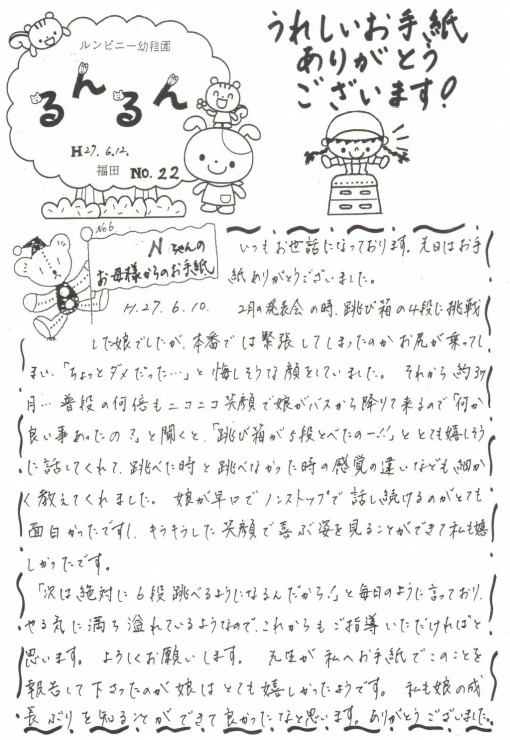 ルンビニー幼稚園
るんるん
H27.6.12.
福田 No.22
うれしいお手紙
ありがとう
ございます!
No6
Nちゃんの
お母様からのお手紙
H.27.6.10.
いつもお世話になっております。先日はお手
紙ありがとうございました。
2月の発表会の時、跳び箱の4段に挑戦
した娘でしたが、本番では緊張してしまったのかお尻が乗ってし
まい、「ちょっとダメだった…」と悔しそうな顔をしていました。それから約3ヶ
月…普段の何倍もニコニコ笑顔で娘がバスから降りて来るので「何か
良い事あったの?」と聞くと、「跳び箱が5段とべたのー!!」ととても嬉しそう
に話してくれて、跳べた時と跳べなかった時の感覚の違いなども細か
く教えてくれました。娘が早口でノンストップで話し続けるのがとても
面白かったですし、キラキラした笑顔で喜ぶ姿を見ることができて私も嬉
しかったです。
「次は絶対に6段跳べるようになるんだから!」と毎日のように言っており、
やる気に満ち溢れているようなので、これからもご指導いただければと
思います。よろしくお願いします。先生が私へお手紙でこのことを
報告して下さったのが娘はとても嬉しかったようです。私も娘の成
長ぶりを知ることができて良かったなと思います。ありがとうございました。